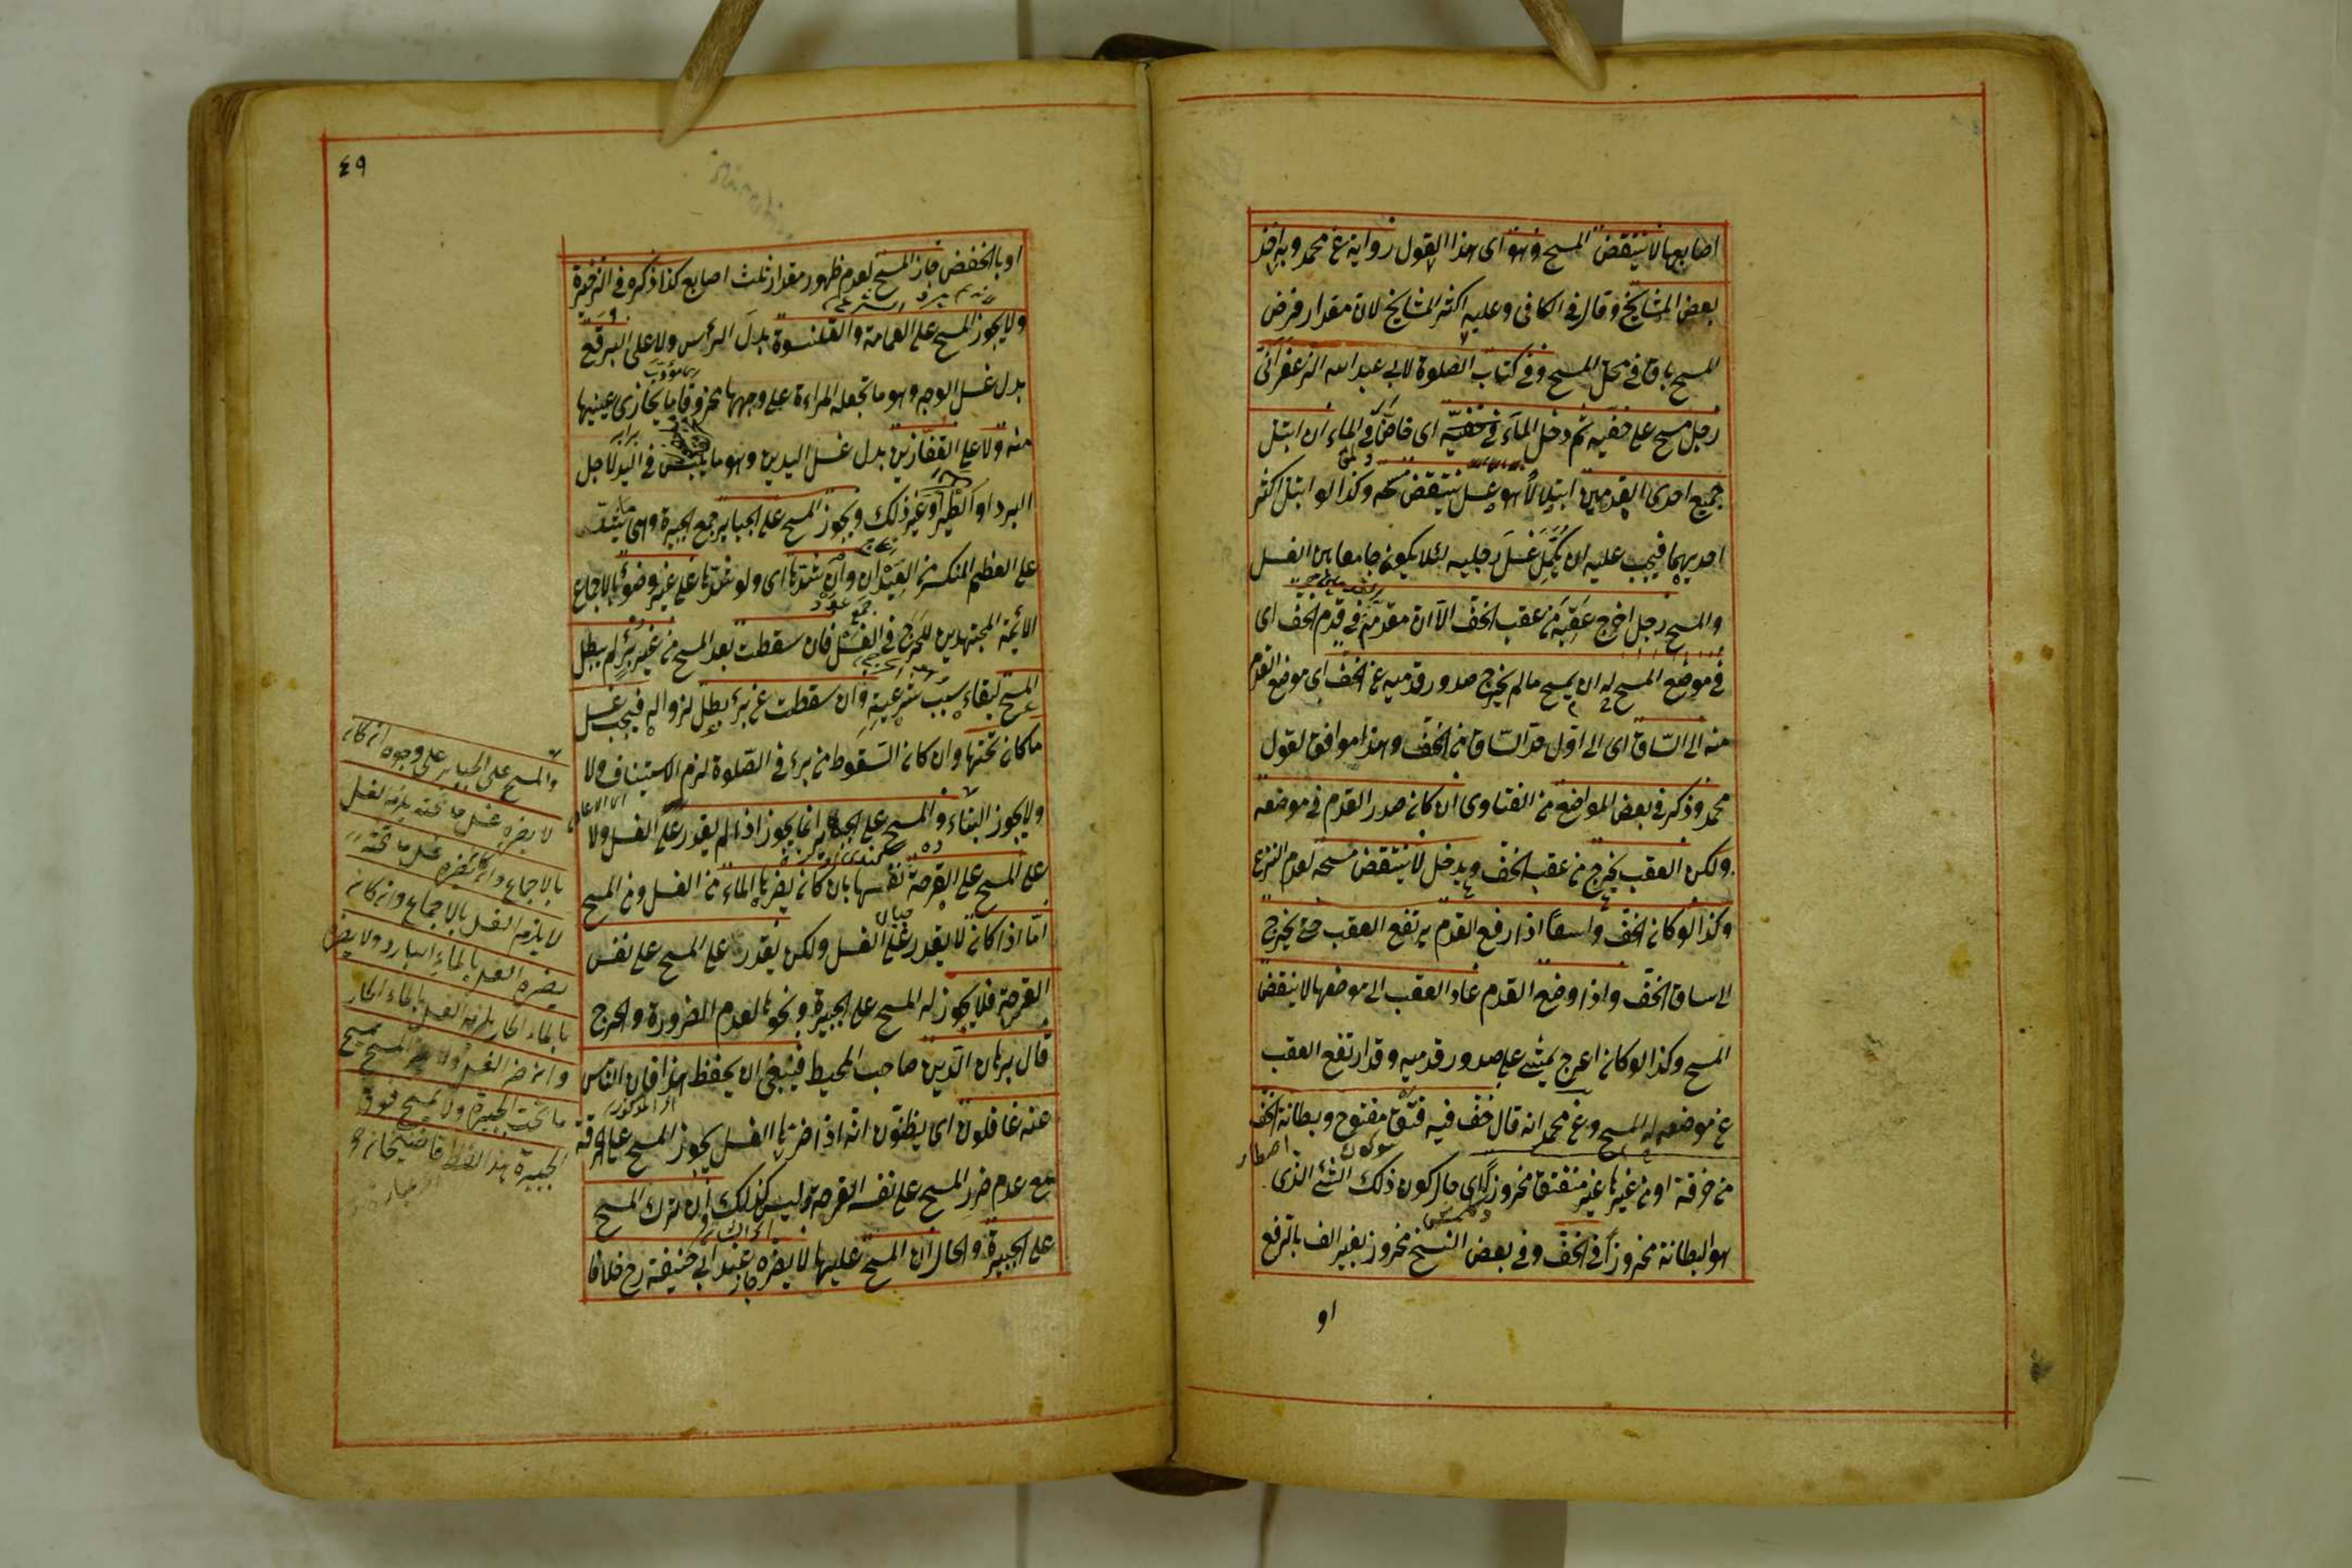 اصابعها لا ينتقض المسح وهو اى هذا القول رواية عن محمد وبه اخذ
بعض المشايخ وقال فى الكافى وعليه اكثر المشايخ لان مقدار فرض
المسح باق فى محل المسح وفى كتاب الصلوة لابى عبد الله الزعفرانى
رجل مسح على خفيه ثم دخل الماء فى خفيه اى خاض فى الماء ان ابتل
جميع احدى القدمين ينتقض مسحه وكذا لو ابتل اكثر
احديهما فيجب عليه ان يكمل غسل رجليه لئلا يكون جامعا بين الغسل
والمسح رجل اخرج عقبه من عقب الخف الا ان مقدمه فى قدم الخف اى
فى موضع المسح له ان يمسح ما لم يخرج صدور قدميه عن الخف اى موضع القدم
منه الى الساق اى الى اول حد الساق من الخف وهذا موافق لقول
محمد وذكر فى بعض المواضع من الفتاوى ان كان صدر القدم فى موضعه
ولكن العقب يخرج من عقب الخف ويدخل لا ينتقض مسحه لعدم النزع
وكذا لو كان الخف واسعا اذا رفع القدم يرتفع العقب حتى يخرج
الى ساق الخف واذا وضع القدم عاد العقب الى موضعها لا ينتقض
المسح وكذا لو كان اعرج يمشى على صدور قدميه وقد ارتفع العقب
عن موضعه له المسح وعن محمد انه قال خف فيه فتق مفتوح وبطانة الخف
من خرقة او من غيرها غير منفتق مخروزا اى حال كون ذلك الشئ الذى
هو البطانة مخروزا فى الخف وفى بعض النسخ مخروز بغير الف بالرفع
او
٤٩
او بالخفض جاز المسح لعدم ظهور مقدار ثلث اصابع كذا ذكره فى الذخيرة
ولا يجوز المسح على العمامة والقلنسوة بدل الرأس ولا على البرقع
بدل غسل الوجه وهو ما تجعله المراءة على وجهها مخروقا ما يحاذى عينيها
منه ولا على القفازين بدل غسل اليدين وهو ما يلبس فى اليد لاجل
البرد او الطير او غير ذلك ويجوز المسح على الجباير جمع الجبيرة وهى ما يشد
على العظم المنكسر من العيدان وان شدها اى ولو شدها على غير وضوء بالاجماع
الائمة المجتهدين للحرج فى الغسل فان سقطت بعد المسح من غير برء لم يبطل
المسح لبقاء سبب شرعيته وان سقطت عن برء بطل لزواله فيجب غسل
ما كان تحتها وان كان السقوط من برء فى الصلوة لزم الاستيناف ولا
ولا يجوز البناء والمسح على الجباير انما يجوز اذا لم يقدر على الغسل ولا
على المسح على القرحة نفسها بان كان يضرها الماء من الغسل ومن المسح
اما اذا كان لا يقدر على الغسل ولكن يقدر على المسح على نفس
القرحة فلا يجوز له المسح على الجبيرة ونحوها لعدم الضرورة والحرج
قال برهان الدين صاحب المحيط فينبغى ان يحفظ هذا فان الناس
عنه غافلون اى يظنون انه اذا ضرها الغسل يجوز المسح على الخرقة
مع عدم ضرر المسح على نفس القرحة وليس كذلك ان ترك المسح
على الجبيرة والحال ان المسح عليها لا يضره جاز عند ابى حنيفة رح خلافا
والمسح على الجباير على وجوه ان كان
لا يضره غسل ما تحته يلزمه الغسل
بالاجماع وان كان يضره غسل ما تحته
لا يلزمه الغسل بالاجماع وان كان
يضره الغسل بالماء البارد ولا يضره
بالماء الحار يلزمه الغسل بالماء الحار
وان ضره الغسل ولا يضره المسح يمسح
ما تحت الجبيرة ولا يمسح فوق
الجبيرة هذا لفظ قاضيخان